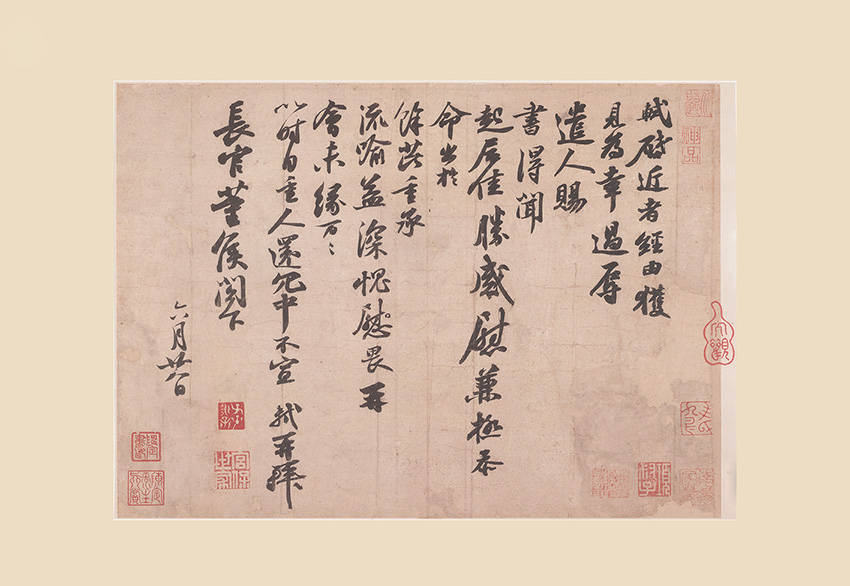 軾啟近者經由獲
見為幸過辱
遣人賜
書得聞
起居佳勝感慰兼極忝
命出於
餘芘重承
流喻益深愧慰畏再
會未緣万〻
以时自重人還冗中不宣 軾再拜
長官董侯閣下
六月廿八日
神品